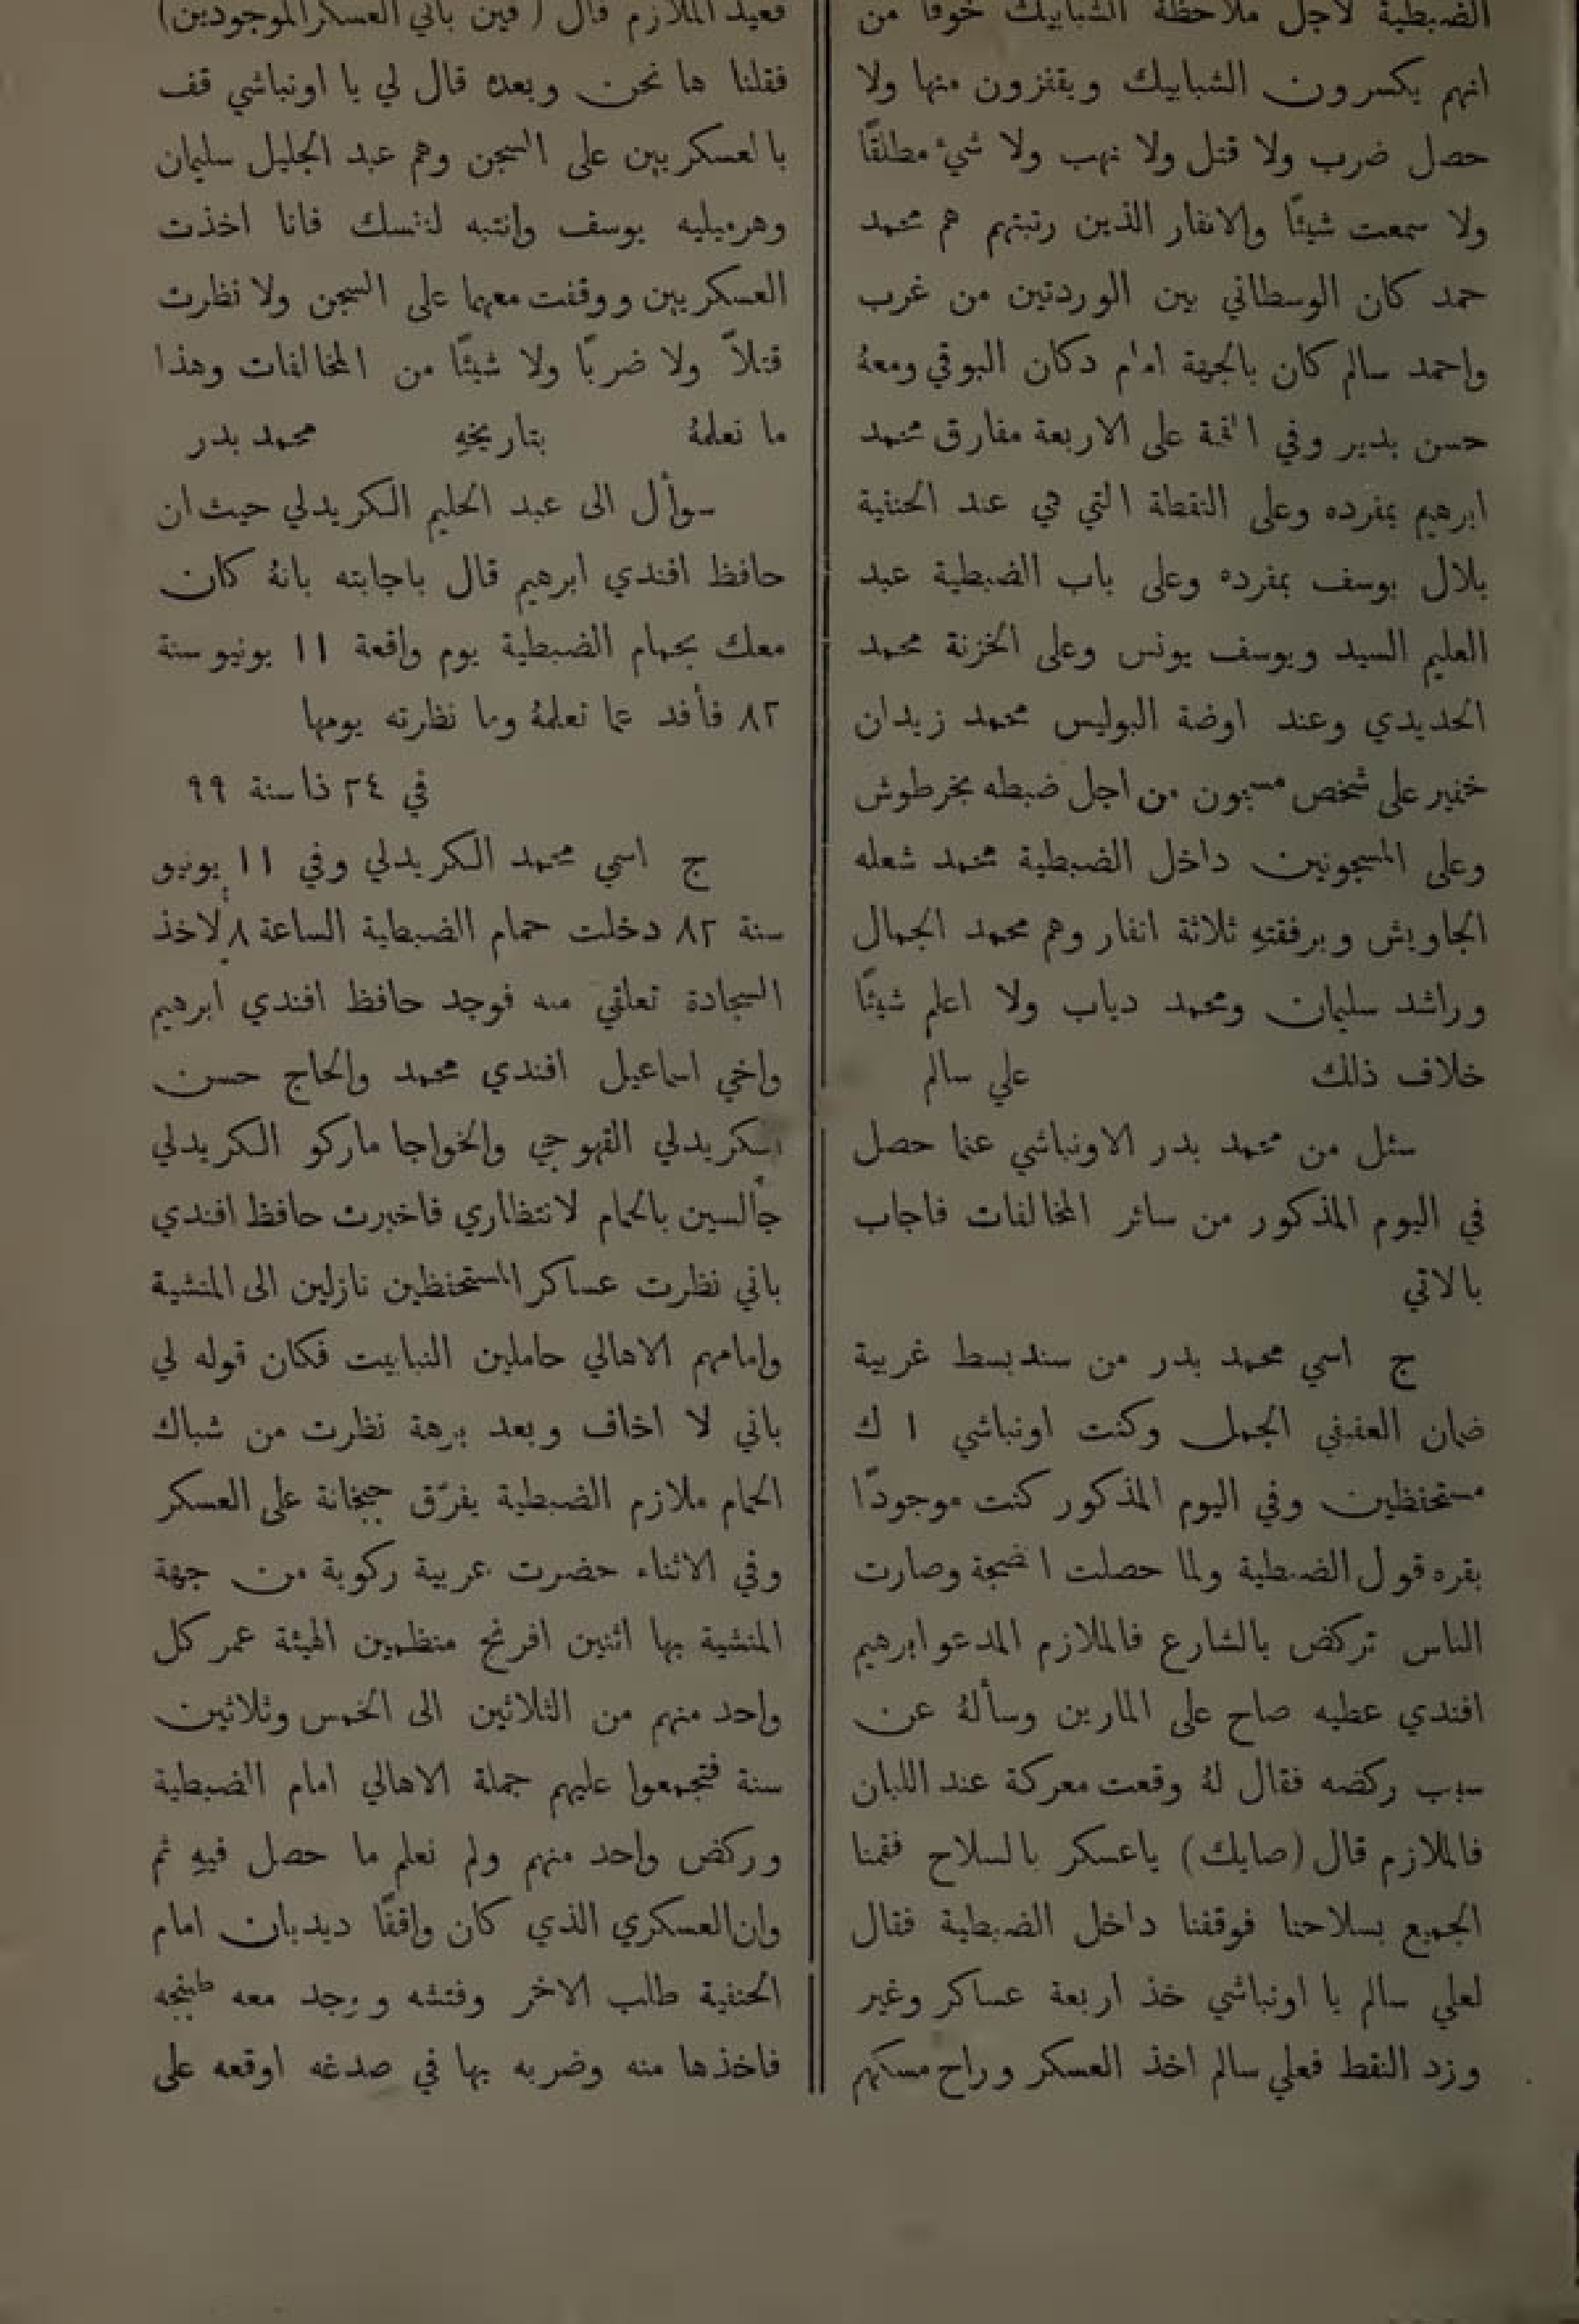 الضبطية لاجل ملاحظة الشبابيك خوفا من
انهم يكسرون الشبابيك ويقفزون منها ولا
حصل ضرب ولا قتل ولا نهب ولا شيء مطلقًا
ولا سمعت شيئًا والانفار الذين رتبتهم هم محمد
حمد كان الوسطاني بين الوردتين من غرب
واحمد سالم كان بالجهة امام دكان البوقي ومعهُ
حسن بدير وفي القمة على الاربعة مفارق محمد
ابرهيم بمفرده وعلى النقطة التي هي عند الحنفية
بلال يوسف بمفرده وعلى باب الضبطية عبد
العليم السيد ويوسف يونس وعلى الخزنة محمد
الحديدي وعند اوضة البوليس محمد زيدان
خفير على شخص مسجون من اجل ضبطه بخرطوش
وعلى المسجونين داخل الضبطية محمد شعله
الجاويش وبرفقتهِ ثلاثة انفار وهم محمد الجمال
وراشد سليمان ومحمد دياب ولا اعلم شيئًا
خلاف ذلك علي سالم
سئل من محمد بدر الاونباشي عما حصل
في اليوم المذكور من سائر المخالفات فاجاب
بالاتي
ج اسمي محمد بدر من سندبسط غربية
ضمان العفيفي الجمل وكنت اونباشي ١ ك
مستحفظين وفي اليوم المذكور كنت موجودًا
بقره قول الضبطية ولما حصلت الضجة وصارت
الناس تركض بالشارع فالملازم المدعو ابرهيم
افندي عطيه صاح على المارين وسألهُ عن
سبب ركضه فقال لهُ وقعت معركة عند اللبان
فالملازم قال (صابك) ياعسكر بالسلاح فقمنا
الجميع بسلاحنا فوقفنا داخل الضبطية فقال
لعلي سالم يا اونباشي خذ اربعة عساكر وغير
وزد النقط فعلي سالم اخذ العسكر وراح مسكهم
فعيد الملازم قال (فين باقي العسكر الموجودين)
فقلنا ها نحن وبعده قال لي يا اونباشي قف
بالعسكريين على السجن وهم عبد الجليل سليمان
وهرميليه يوسف وانتبه لنفسك فانا اخذت
العسكريين ووقفت معهما على السجن ولا نظرت
قتلاً ولا ضربًا ولا شيئًا من المخالفات وهذا
ما نعلمهُ بتاريخهِ محمد بدر
سوأل الى عبد الحليم الكريدلي حيث ان
حافظ افندي ابرهيم قال باجابته بانهُ كان
معك بحمام الضبطية يوم واقعة ١١ يونيو سنة
٨٢ فأفد عما تعلمهُ وما نظرته يومها
في ٢٤ ذا سنة ٩٩
ج اسمي محمد الكريدلي وفي ١١ يونيو
سنة ٨٢ دخلت حمام الضبطية الساعة ٨ لاخذ
السجادة تعلقي منه فوجد حافظ افندي ابرهيم
واخي اسماعيل افندي محمد والحاج حسن
الكريدلي القهوجي والخواجا ماركو الكريدلي
جالسين بالحمام لانتظاري فاخبرت حافظ افندي
باني نظرت عساكر المستحفظين نازلين الى المنشية
وامامهم الاهالي حاملين النبابيت فكان قوله لي
باني لا اخاف وبعد برهة نظرت من شباك
الحمام ملازم الضبطية يفرّق جبخانة على العسكر
وفي الاثناء حضرت عربية ركوبة من جهة
المنشية بها اثنين افرنج منظمين الهيئة عمر كل
واحد منهم من الثلاثين الى الخمس وثلاثين
سنة فتجمعوا عليهم جملة الاهالي امام الضبطية
وركض واحد منهم ولم نعلم ما حصل فيهِ ثم
وان العسكري الذي كان واقفًا ديدبان امام
الحنفية طلب الاخر وفتشه ووجد معه طبنجه
فاخذها منه وضربه بها في صدغه اوقعه على